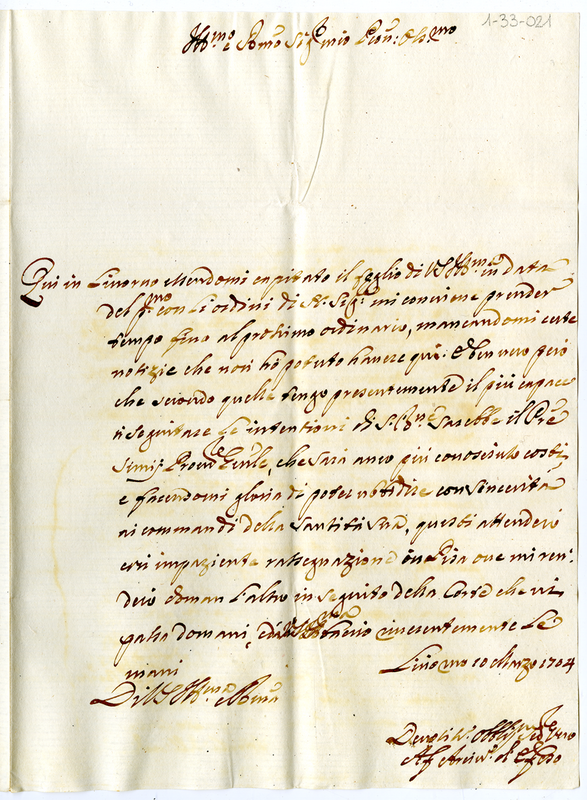 1-33-021
Ill.mo e R.mo Sig.r mio Pron: Col.mo
Qui in Livorno essendomi capitato il foglio di V.S. Ill.ma in data
del p.mo con L'ordini di N. Sig.re mi conviene prender
tempo fino al prossimo ordinario, mancandomi certe
notizie che non hò potuto havere quì. È ben vero però
che secondo quelle tengo presentemente il più capace
à seguitare le intentioni di S. B.ne sarebbe il Pre
che sarà anco più conosciuto costì,
e facendomi gloria di poter obbidire con sincerità
ai commandi della Santità Sua, questi attenderò
con impaziente rassegnazione in Pisa ove mi ren:
derò doman l'altro in seguito della Corte che vi
passa domani, e à V.S. Ill.ma bacio riverentemente le
mani
Livorno 10 Marzo 1704
Di V.S. Ill.ma e R.ma